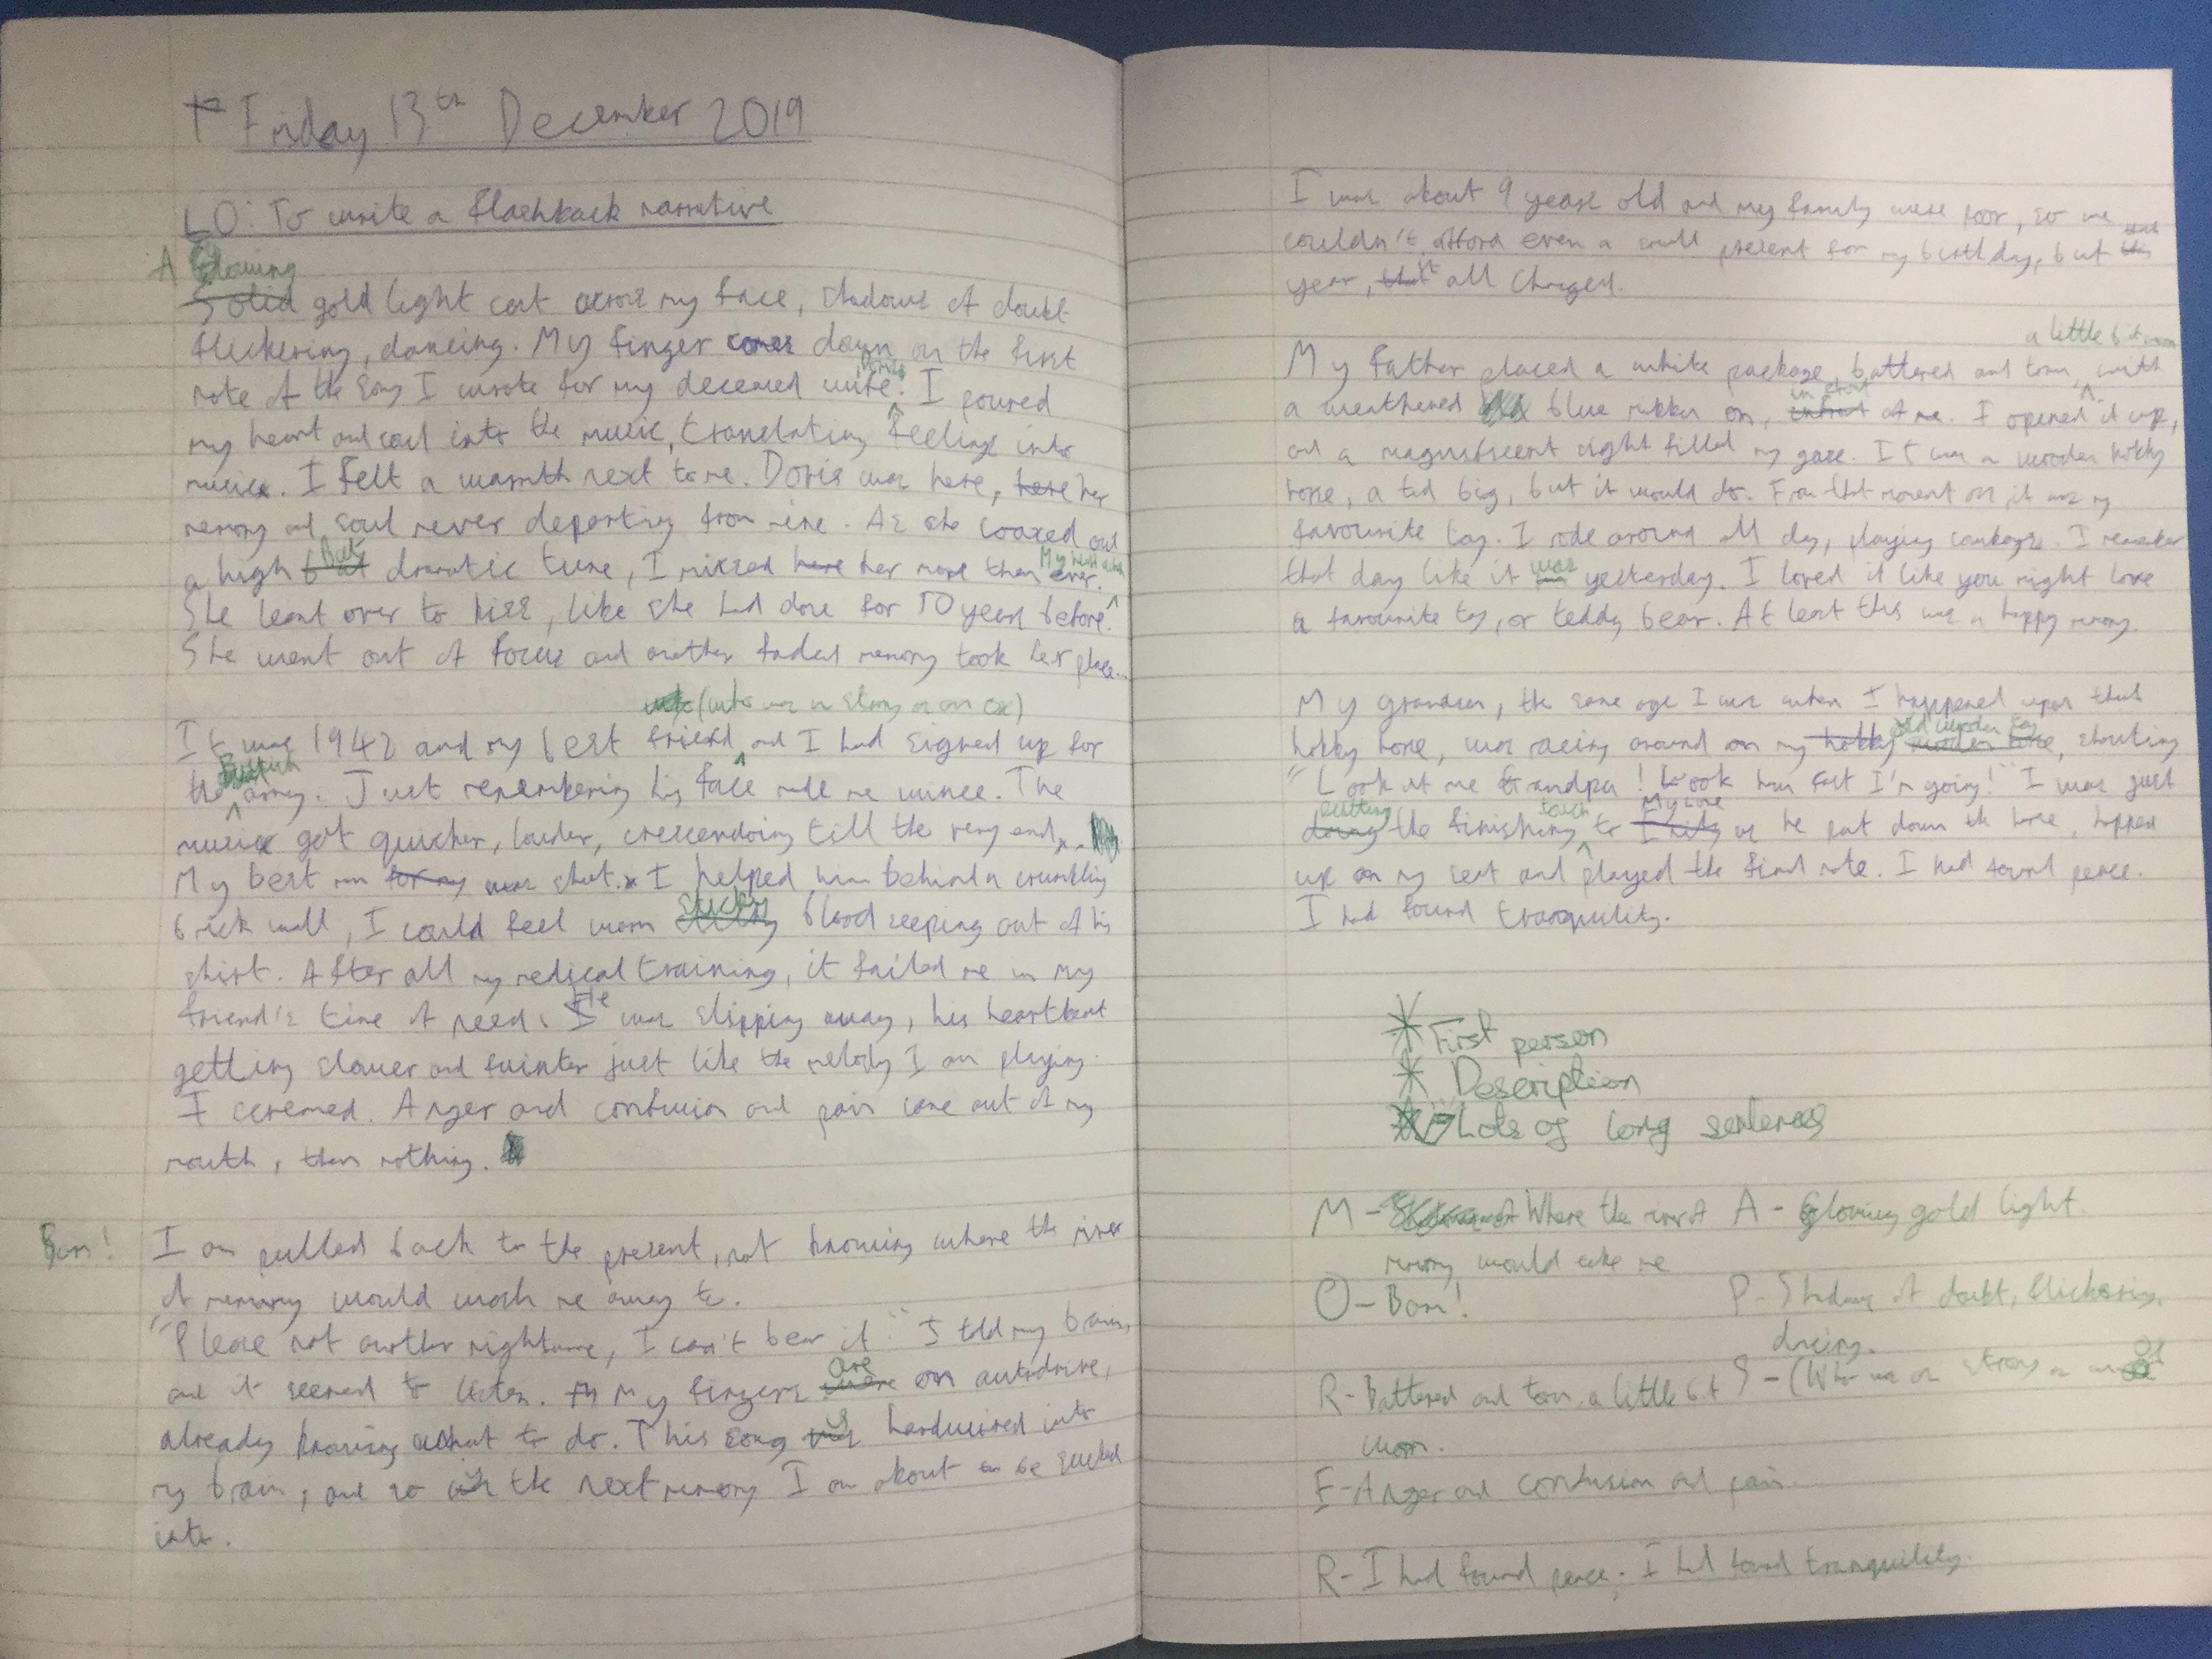 Friday 13th December 2019
LO: To write a flashback narrative
A Glowing
Solid gold light cast across my face, shadows of doubt
flickering, dancing. My finger comes down on the first
note of the song I wrote for my deceased wife. I poured
my heart and soul into the music, translating feelings into
music. I felt a warmth next to me. Doris was here, here her
memory and soul never departing from mine. As she coaxed out
But
a high but dramatic tune, I missed here her more than ever.
She leant over to kiss, like she had done for 50 years before.
She went out of focus and another faded memory took her place...
(who was as strong as an ox)
It was 1942 and my best friend and I had signed up for
British
the army. Just remembering his face made me wince. The
music got quicker, louder, crescendoing till the very end.
My best man for my was shot. I helped him behind a crumbling
sticky
brick wall, I could feel warm blood seeping out of his
shirt. After all my medical training, it failed me in my
He
friend's time of need. I was slipping away, his heartbeat
getting slower and fainter just like the melody I am playing.
I screamed. Anger and confusion and pain came out of my
mouth, then nothing.
Bam! I am pulled back to the present, not knowing where the river
of memory would wash me away to.
"Please not another nightmare, I can't bear it." I told my brain,
are
and it seemed to listen. My fingers were on autodrive,
already knowing what to do. This song is hardwired into
my brain, and so is the next memory I am about to be sucked
into.
I was about 9 years old and my family were poor, so we
couldn't afford even a small present for my birthday, but that
it
year, that all changed.
a little bit worn
My father placed a white package, battered and torn, with
in front
a weathered blue ribbon on, infront of me. I opened it up,
and a magnificent sight filled my gaze. It was a wooden hobby
horse, a tad big, but it would do. From that moment on it was my
favourite toy. I rode around all day, playing cowboys. I remember
was
that day like it yesterday. I loved it like you might love
a favourite toy, or teddy bear. At least this was a happy memory.
My grandson, the same age I was when I happened upon that
old wooden toy
hobby horse, was racing around on my hobby wooden horse, shouting
"Look at me Grandpa! Look how fast I'm going!" I was just
putting touch My love
doing the finishing to as he put down the horse, hopped
up on my seat and played the final note. I had found peace.
I had found tranquility.
* First person
* Description
* Lots of long sentences
M - Where the river of memory would take me
A - Glowing gold light.
O - Bam!
P - Shadows of doubt, flickering, dancing.
R - Battered and torn, a little bit worn.
S - (Who was as strong as an ox
E - Anger and confusion and pain.
R - I had found peace. I had found tranquility.